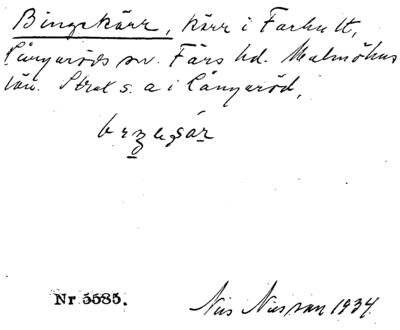 Bingekärr, kärr i Farhult,
Långaröds sn. Färs hd. Malmöhus
län. Strax s. a i Långaröd,
Nr 5585.
Nils Nilsson 1934.